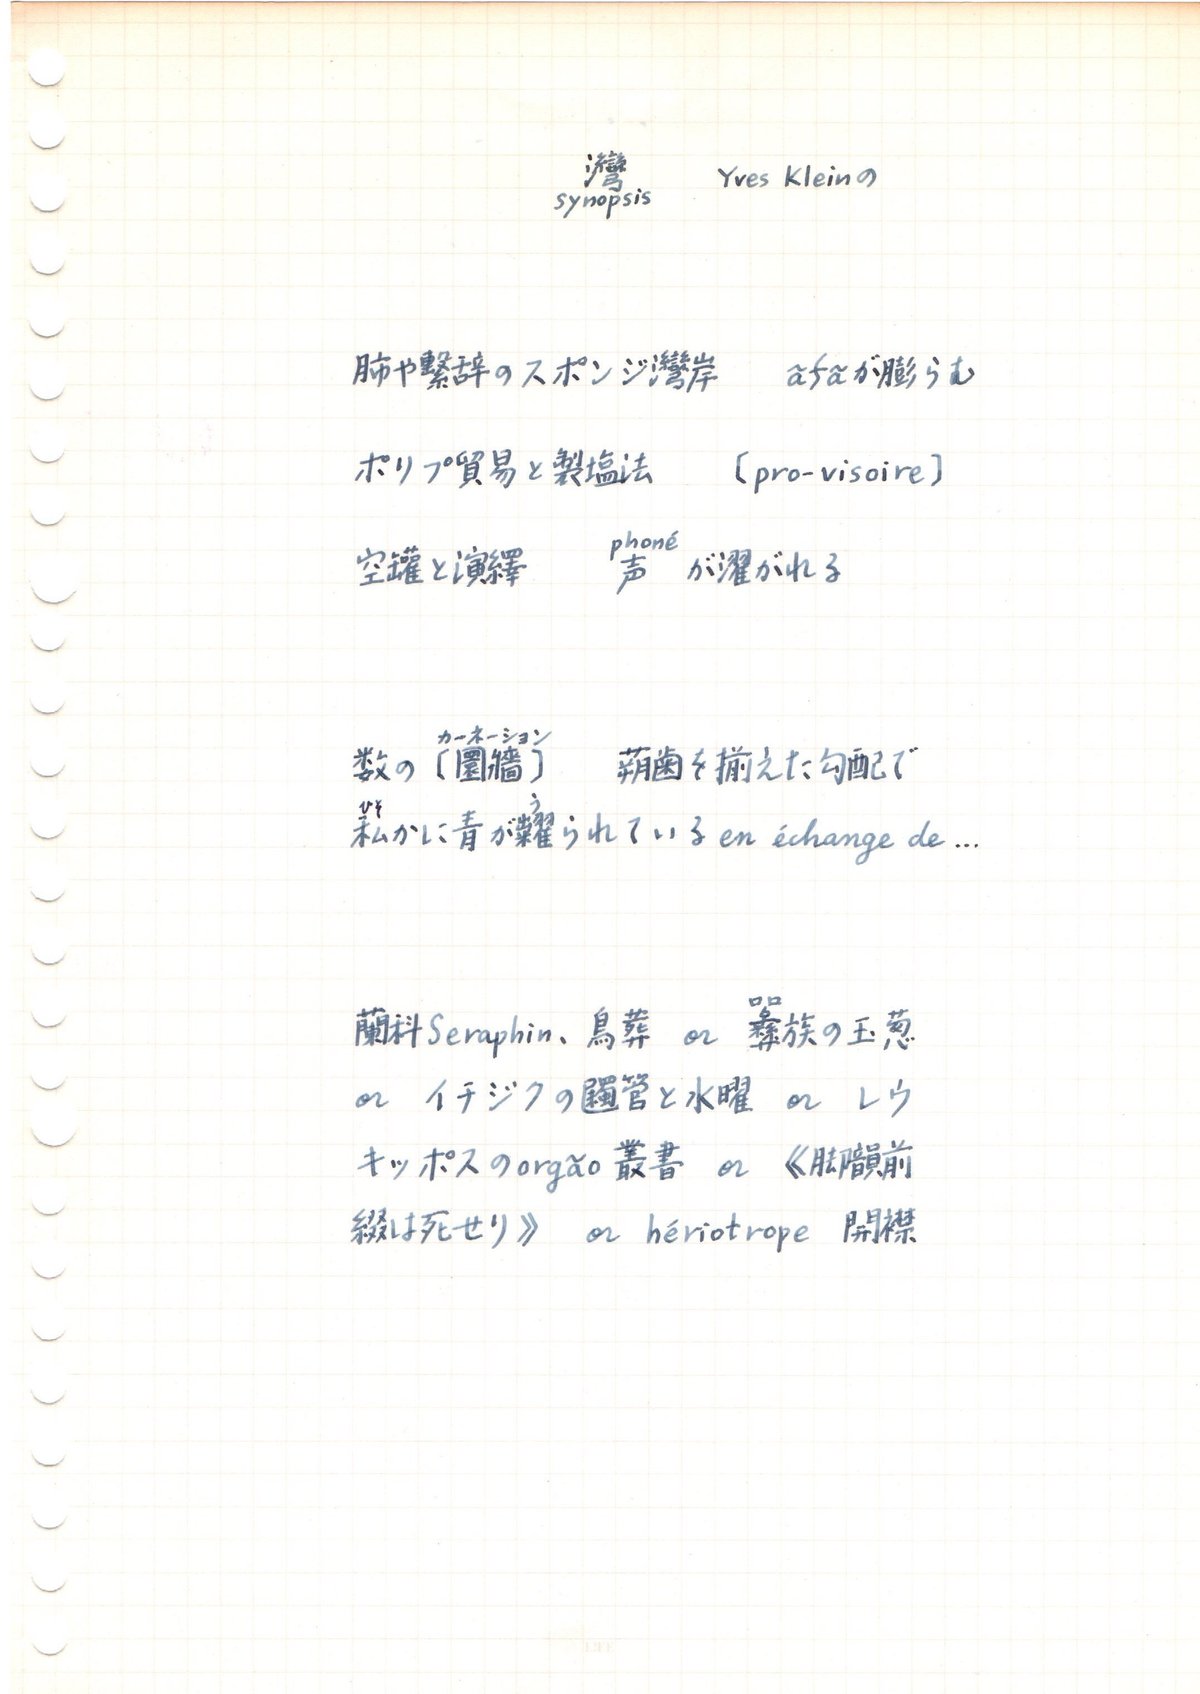 灣 Yves Kleinの
synopsis
肺や繫辞のスポンジ灣岸 ãfãが膨らむ
ポリプ貿易と製塩法 〔pro-visoire〕
phoné
空罐と演繹 声が濯がれる
カーネーション
数の〔圜牆〕 蒴歯を揃えた勾配で
ひそ う
私かに青が糶られている en échange de…
蘭科Seraphin、鳥葬 or 彝族の玉葱
or イチジクの管と水曜 or レウ
キッポスのorgão叢書 or 《韻前
綴は死せり》 or hériotrope 開襟
LIFE